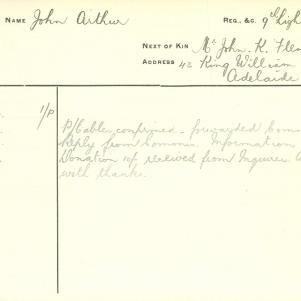 NAME John Arthur
REG., &C. 9th Ligh
NEXT OF KIN Mr John. K. Flem
ADDRESS 42 King William
Adelaide
1/P
P/Cable confirmed - forwarded
Reply from Information
Donation received from Inquirer
with thanks.